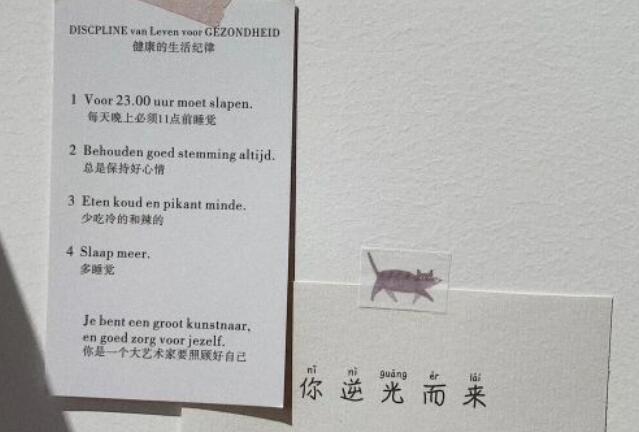 DISCPLINE van Leven voor GEZONDHEID
健康的生活纪律
1 Voor 23.00 uur moet slapen.
每天晚上必须11点前睡觉
2 Behouden goed stemming altijd.
总是保持好心情
3 Eten koud en pikant minde.
少吃冷的和辣的
4 Slaap meer.
多睡觉
Je bent een groot kunstnaar,
en goed zorg voor jezelf.
你是一个大艺术家要照顾好自己
nǐ nì guāng ér lái
你逆光而来